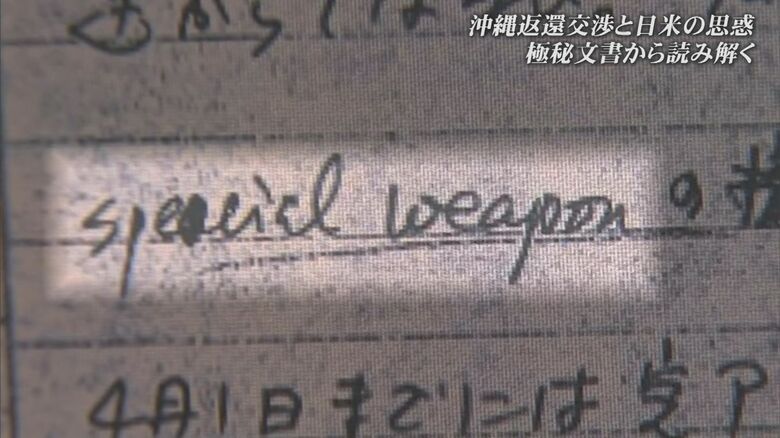 沖縄返還交渉と日米の思惑
極秘文書から読み解く
からでは
special weapon の
4月1日までには